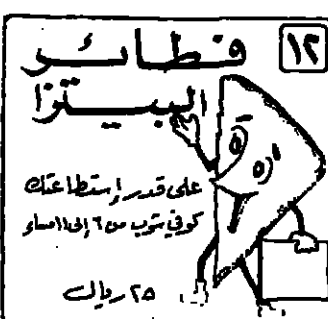 ١٢
فطائر
البيتزا
على قدر إستطاعتك
كوفي شوب من ٦ إلى ١١ مساء
٢٥ ريال